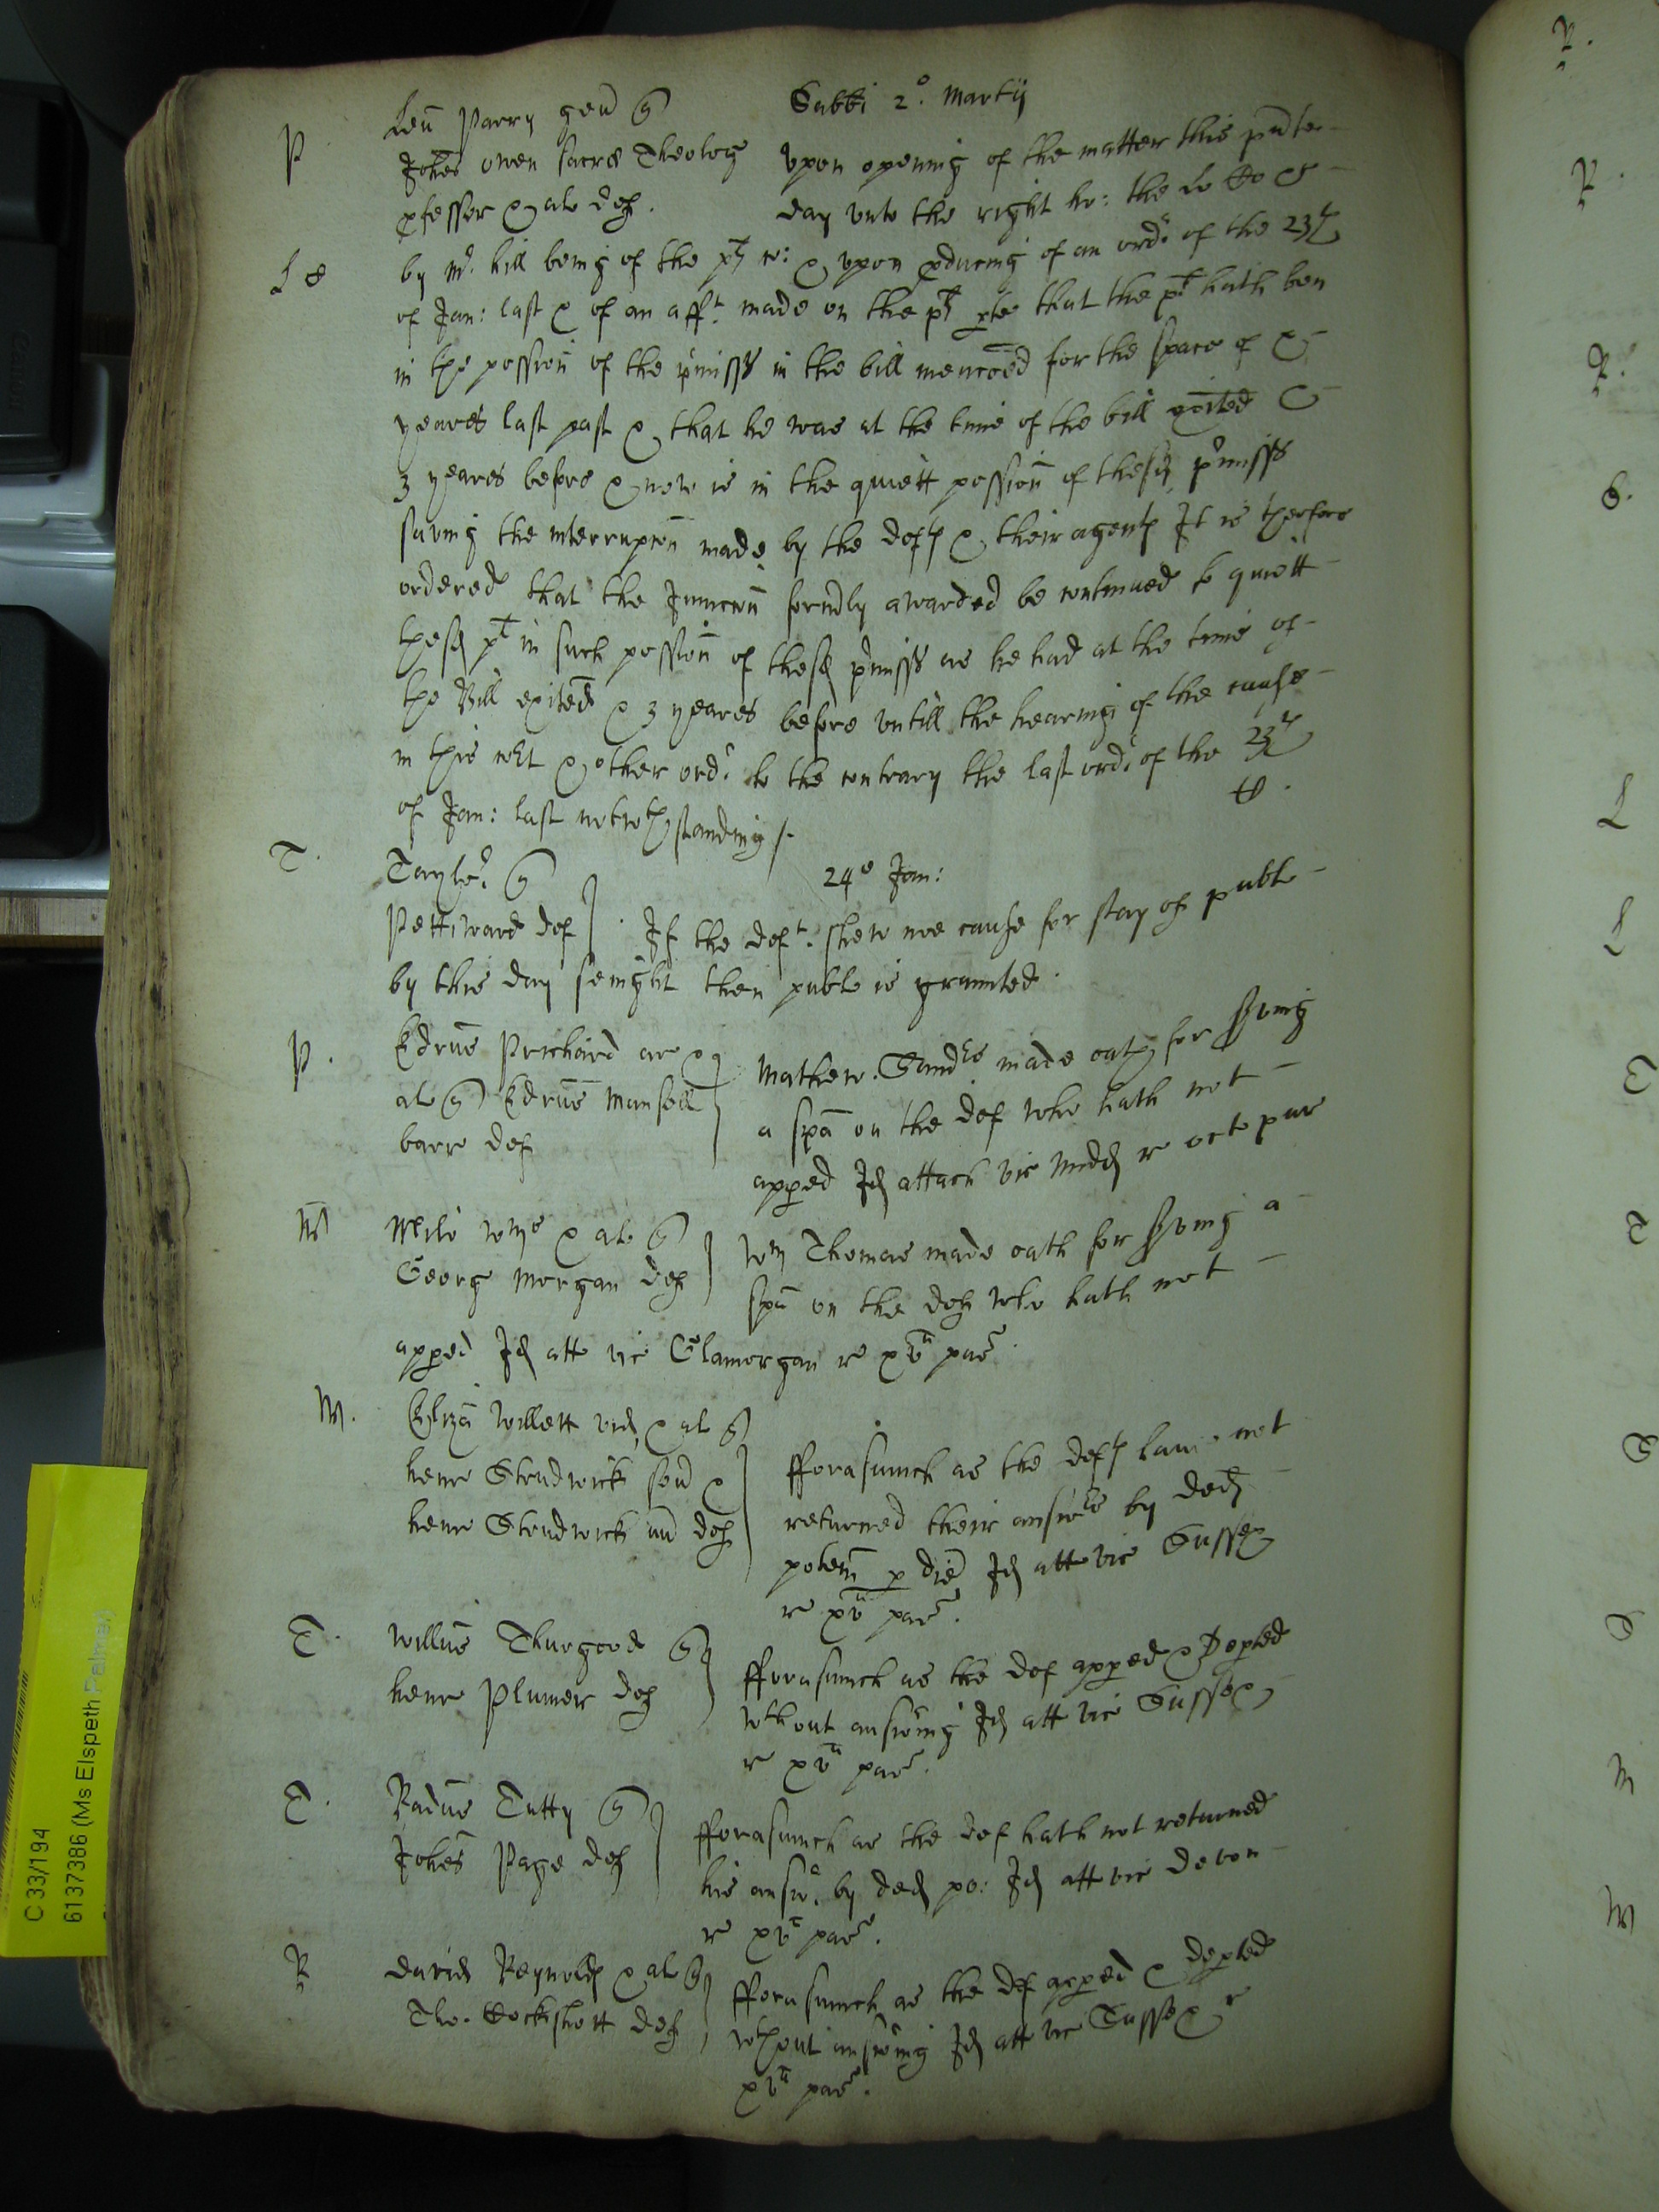 Sabbti 2°. Martij
P Leū Parry gen̄ q̃
Johēs Owen sacræ Theologie
pfessor & al def.
Upon opening of the matter this pn̄te
day unto the right ho: the Lo
by Mr. hill being of the plt co: & upon pducing of an ordr. of the 23th
of Jan: last & of an afft. made on the plts pte that the plt hath ben
in the possion̄ of the pmisss in the bill menc̄oed for the space of
yeares last past & that he was at the time of the bill exited
3 yeares before & now is in the quiett possion̄ of thesd pmisss
saving the interrupc̄on made by the defts & their agents It is therfore
ordered that the Iniunc̄con formdly awarded be continued to quiett
thesd plt in such possion̄ of thesd pmisss as he had at the time of
the Bill exited & 3 yeares before untill the hearing of the cause
in this cort & other ordr. to the contrary the last ordr. of the 23th
of Jan: last notwthstanding /.
T. Taylor. q̃ 24° Jan:
Pettiward def . If the deft. shew noe cause for stay of publ
by this day senight then publ is graunted.
P. Edrūs Prichard ar &
al q̃ Edrūs Mansell
barr def
Mathew. Sandrs made oath for sving
a spā on the def who hath not
apped Id attach vic Midd r octo pur
W Wil̄i wms & al q̃
Georg Morgan def
Wm Thomas made oath for sving a
spā on the def who hath not
apped Id att vic Glamorgan r xva pur.
W. Eliza Willett vid & al q̃
henr Strudwick sen̄ &
henr Strudwick iun̄ def
fforasmuch as the defts have not
returned their answrs by ded
potem̄ p dic̄ Id att vic Sussex
r xva pur.
T. Willus Thurgood q̃
henr Plumer def
fforasmuch as the def apped & depted
wthout answing Id att vic Sussex
r xva pur.
T. Radus Tutty q̃
Johēs Page def
fforasmuch as the def hath not returned
his answr. by ded po: Id att vic Devon
r xva pur.
R David Reynolds & al q̃
Tho. Cockshott def
fforasmuch as the def apped & depted
wthout answing Id att vic Sussex r
xva pur.
C 33/194
6137386 (Ms Elspeth Palmer)